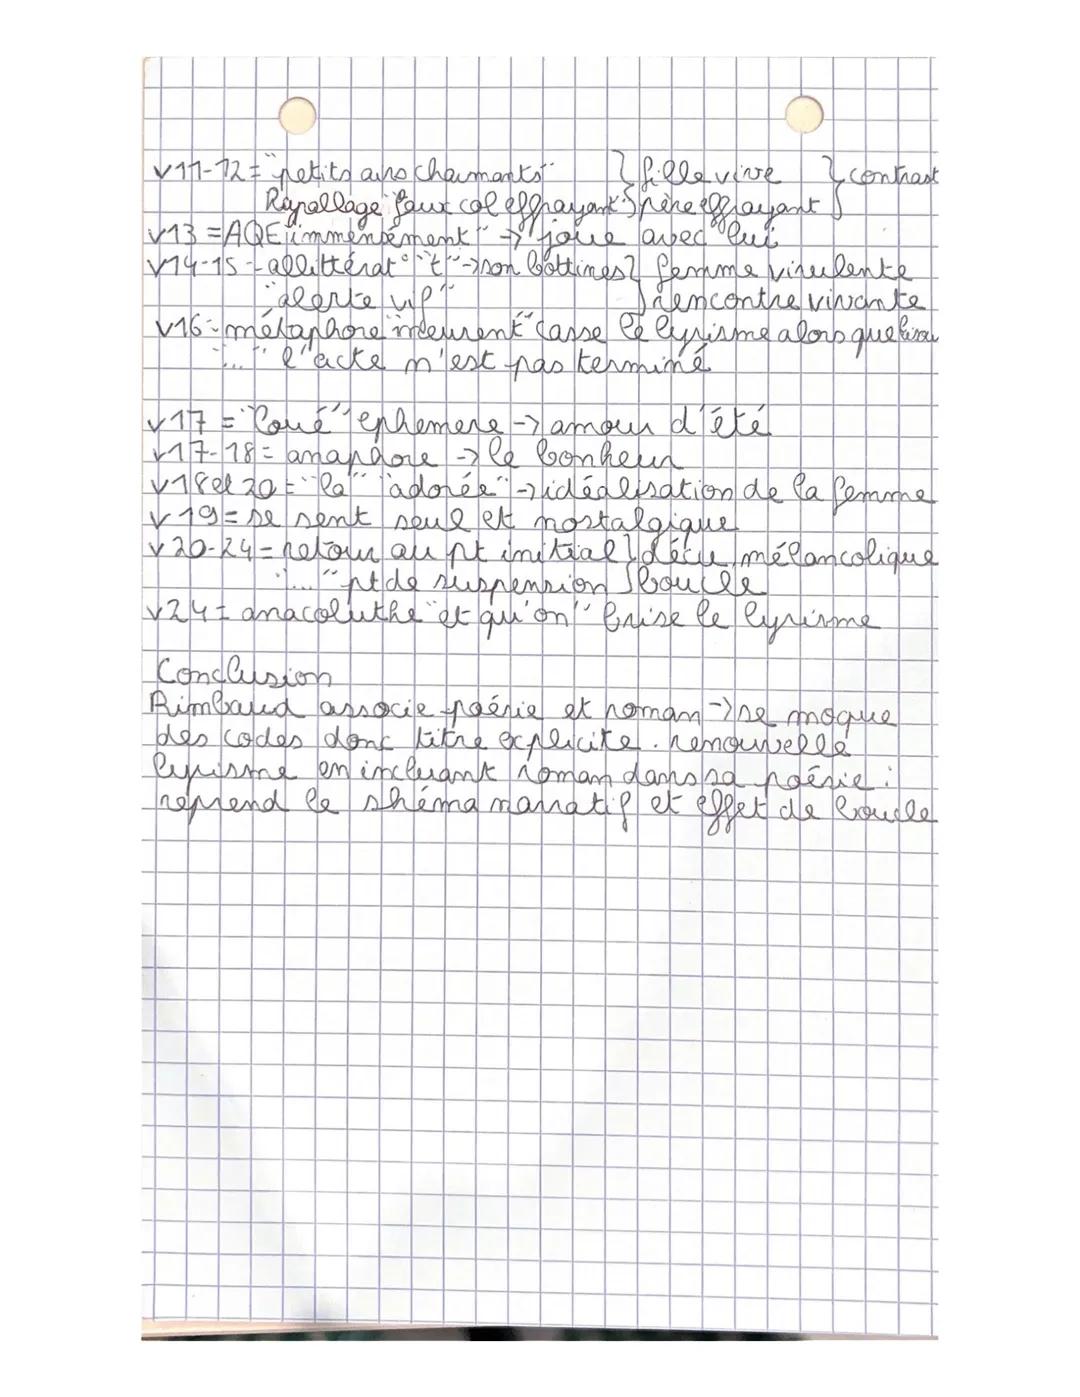 v11-12= "petits airs charmants" } fille vive } contrast
Rapallage "faux col effrayant" } père effrayant
v13 = AQE "immensément" -> "joue avec" lui
v14-15 - allittérat° "t" -> son bottines } femme virulente
"alerte vif" } rencontre vivante
v16= métaphore "meurent" casse le lyrisme alors que
"..." l'acte n'est pas terminé
v17 = "Loué" ephemere -> amour d'été
v17-18= anaphore -> le bonheur
v18 et 20= "la" "adorée" -> idéalisation de la femme
v19= se sent seul et nostalgique
v20-24= retour au pt initial } décu, mélancolique
"..." pt de suspension } boucle
v24= anacoluthe "et qu'on" brise le lyrisme
Conclusion
Rimbaud associe poésie et roman -> se moque
des codes donc titre explicite. renouvelle
lyrisme en incluant roman dans sa poésie :
reprend le shéma narratif et effet de boucle